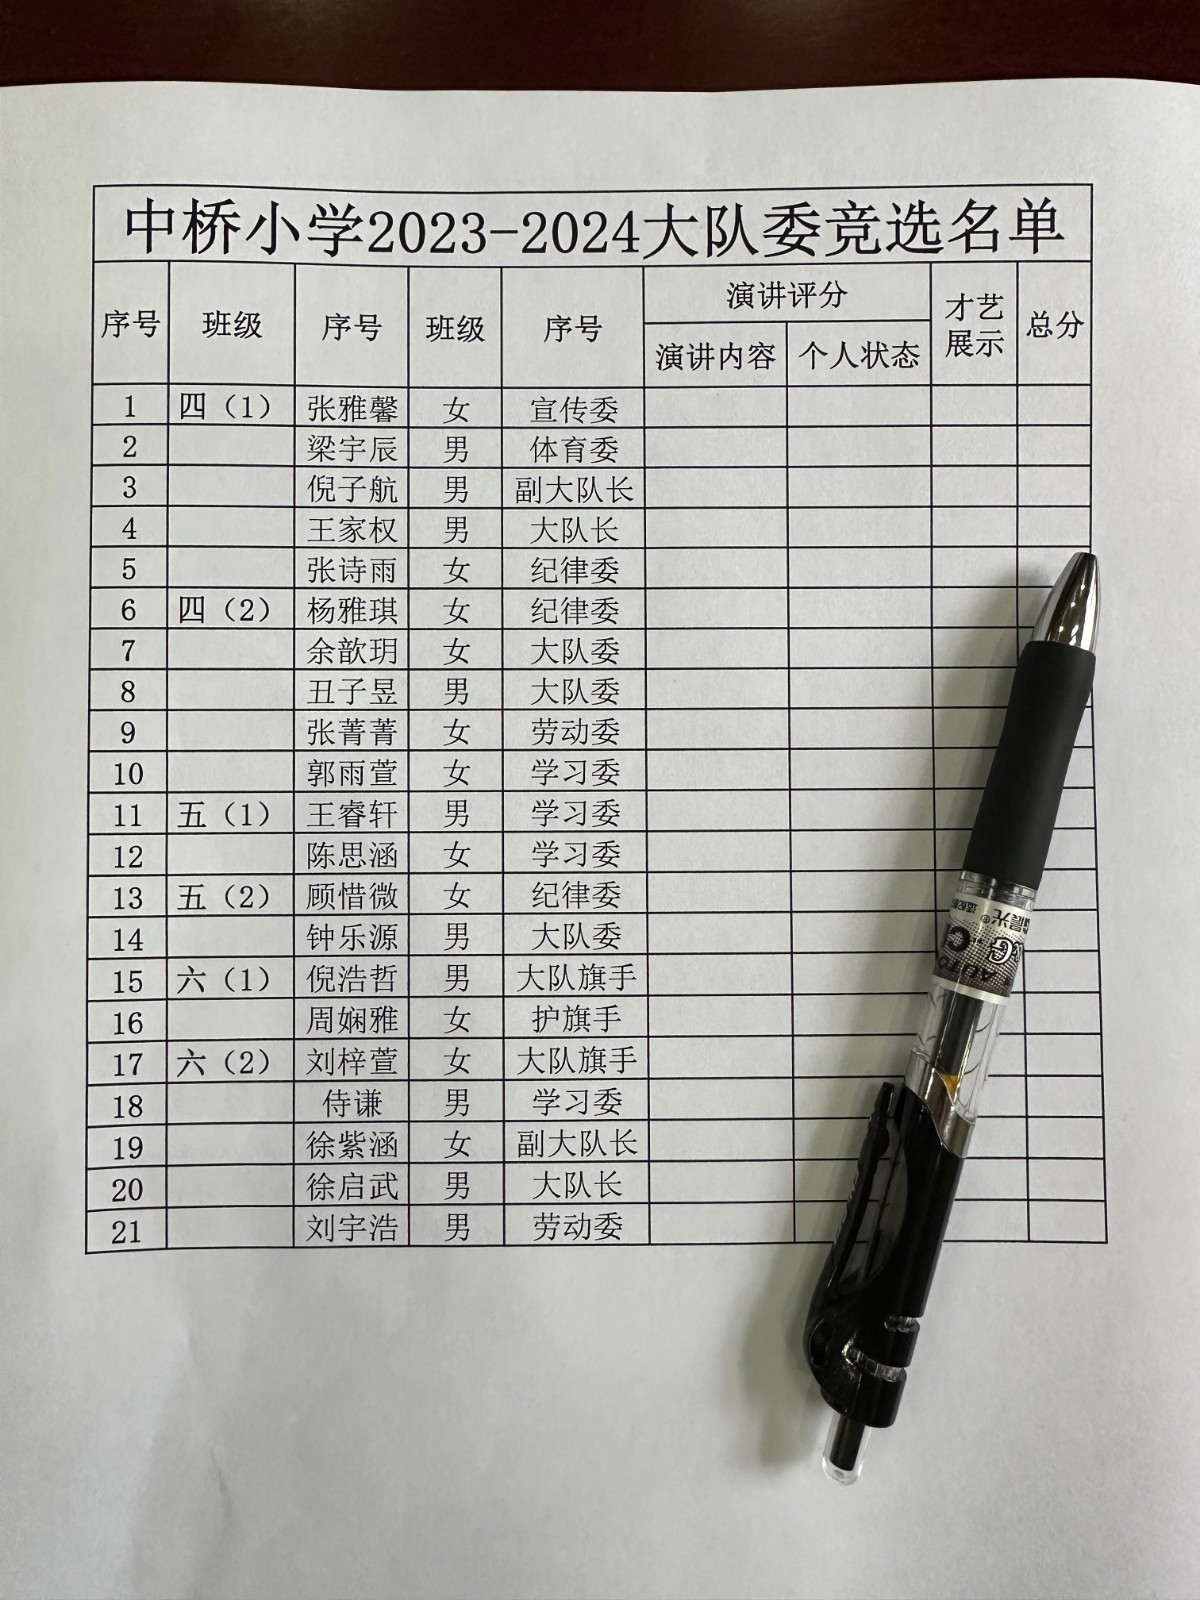 中桥小学2023-2024大队委竞选名单
序号 班级 序号 班级 序号 演讲评分 才艺展示 总分
演讲内容 个人状态
1 四（1） 张雅馨 女 宣传委
2 梁宇辰 男 体育委
3 倪子航 男 副大队长
4 王家权 男 大队长
5 张诗雨 女 纪律委
6 四（2） 杨雅琪 女 纪律委
7 余歆玥 女 大队委
8 丑子昱 男 大队委
9 张菁菁 女 劳动委
10 郭雨萱 女 学习委
11 五（1） 王睿轩 男 学习委
12 陈思涵 女 学习委
13 五（2） 顾惜微 女 纪律委
14 钟乐源 男 大队委
15 六（1） 倪浩哲 男 大队旗手
16 周娴雅 女 护旗手
17 六（2） 刘梓萱 女 大队旗手
18 侍谦 男 学习委
19 徐紫涵 女 副大队长
20 徐启武 男 大队长
21 刘宇浩 男 劳动委
晨光®